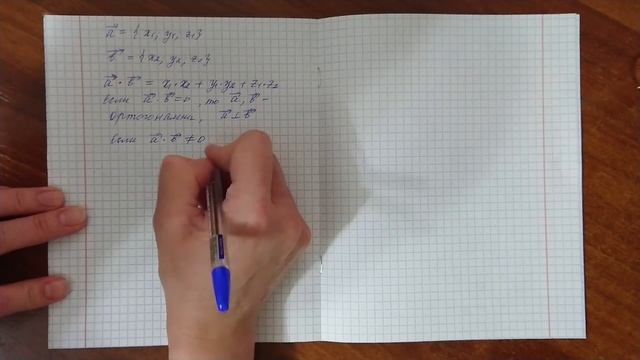 a⃗ = { x₁, y₁, z₁}
b⃗ = { x₂, y₂, z₂}
a⃗ · b⃗ = x₁·x₂ + y₁·y₂ + z₁·z₂
Если a⃗ · b⃗ = 0, то a⃗, b⃗ –
ортогональна, a⃗ ⊥ b⃗
Если a⃗ · b⃗ ≠ 0